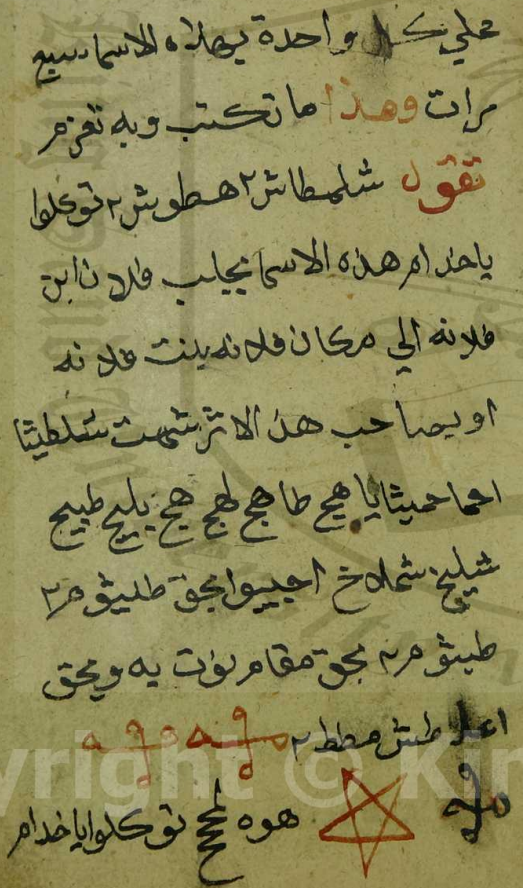 علي كل واحدة بهذه الاسما سبع
مرات وهذا ما تكتب وبه تعزم
تقول شلمطاش٢ هطوش٢ توكلوا
ياخدام هذه الاسما بجلب فلان ابن
فلانه الي مكان فلانه بنت فلانه
او بصاحب هذ الاثر شهت شلطيثا
احما حميثا يا هيج طاهج لهج هيج بليج طبيج
شليخ شملاخ اجيبوا بحق طليثوم٢
طيثوم٢ بحق مقام نوت يه وبحق
طش مطط٢
هوه توكلوا ياخدام
yright © Kin